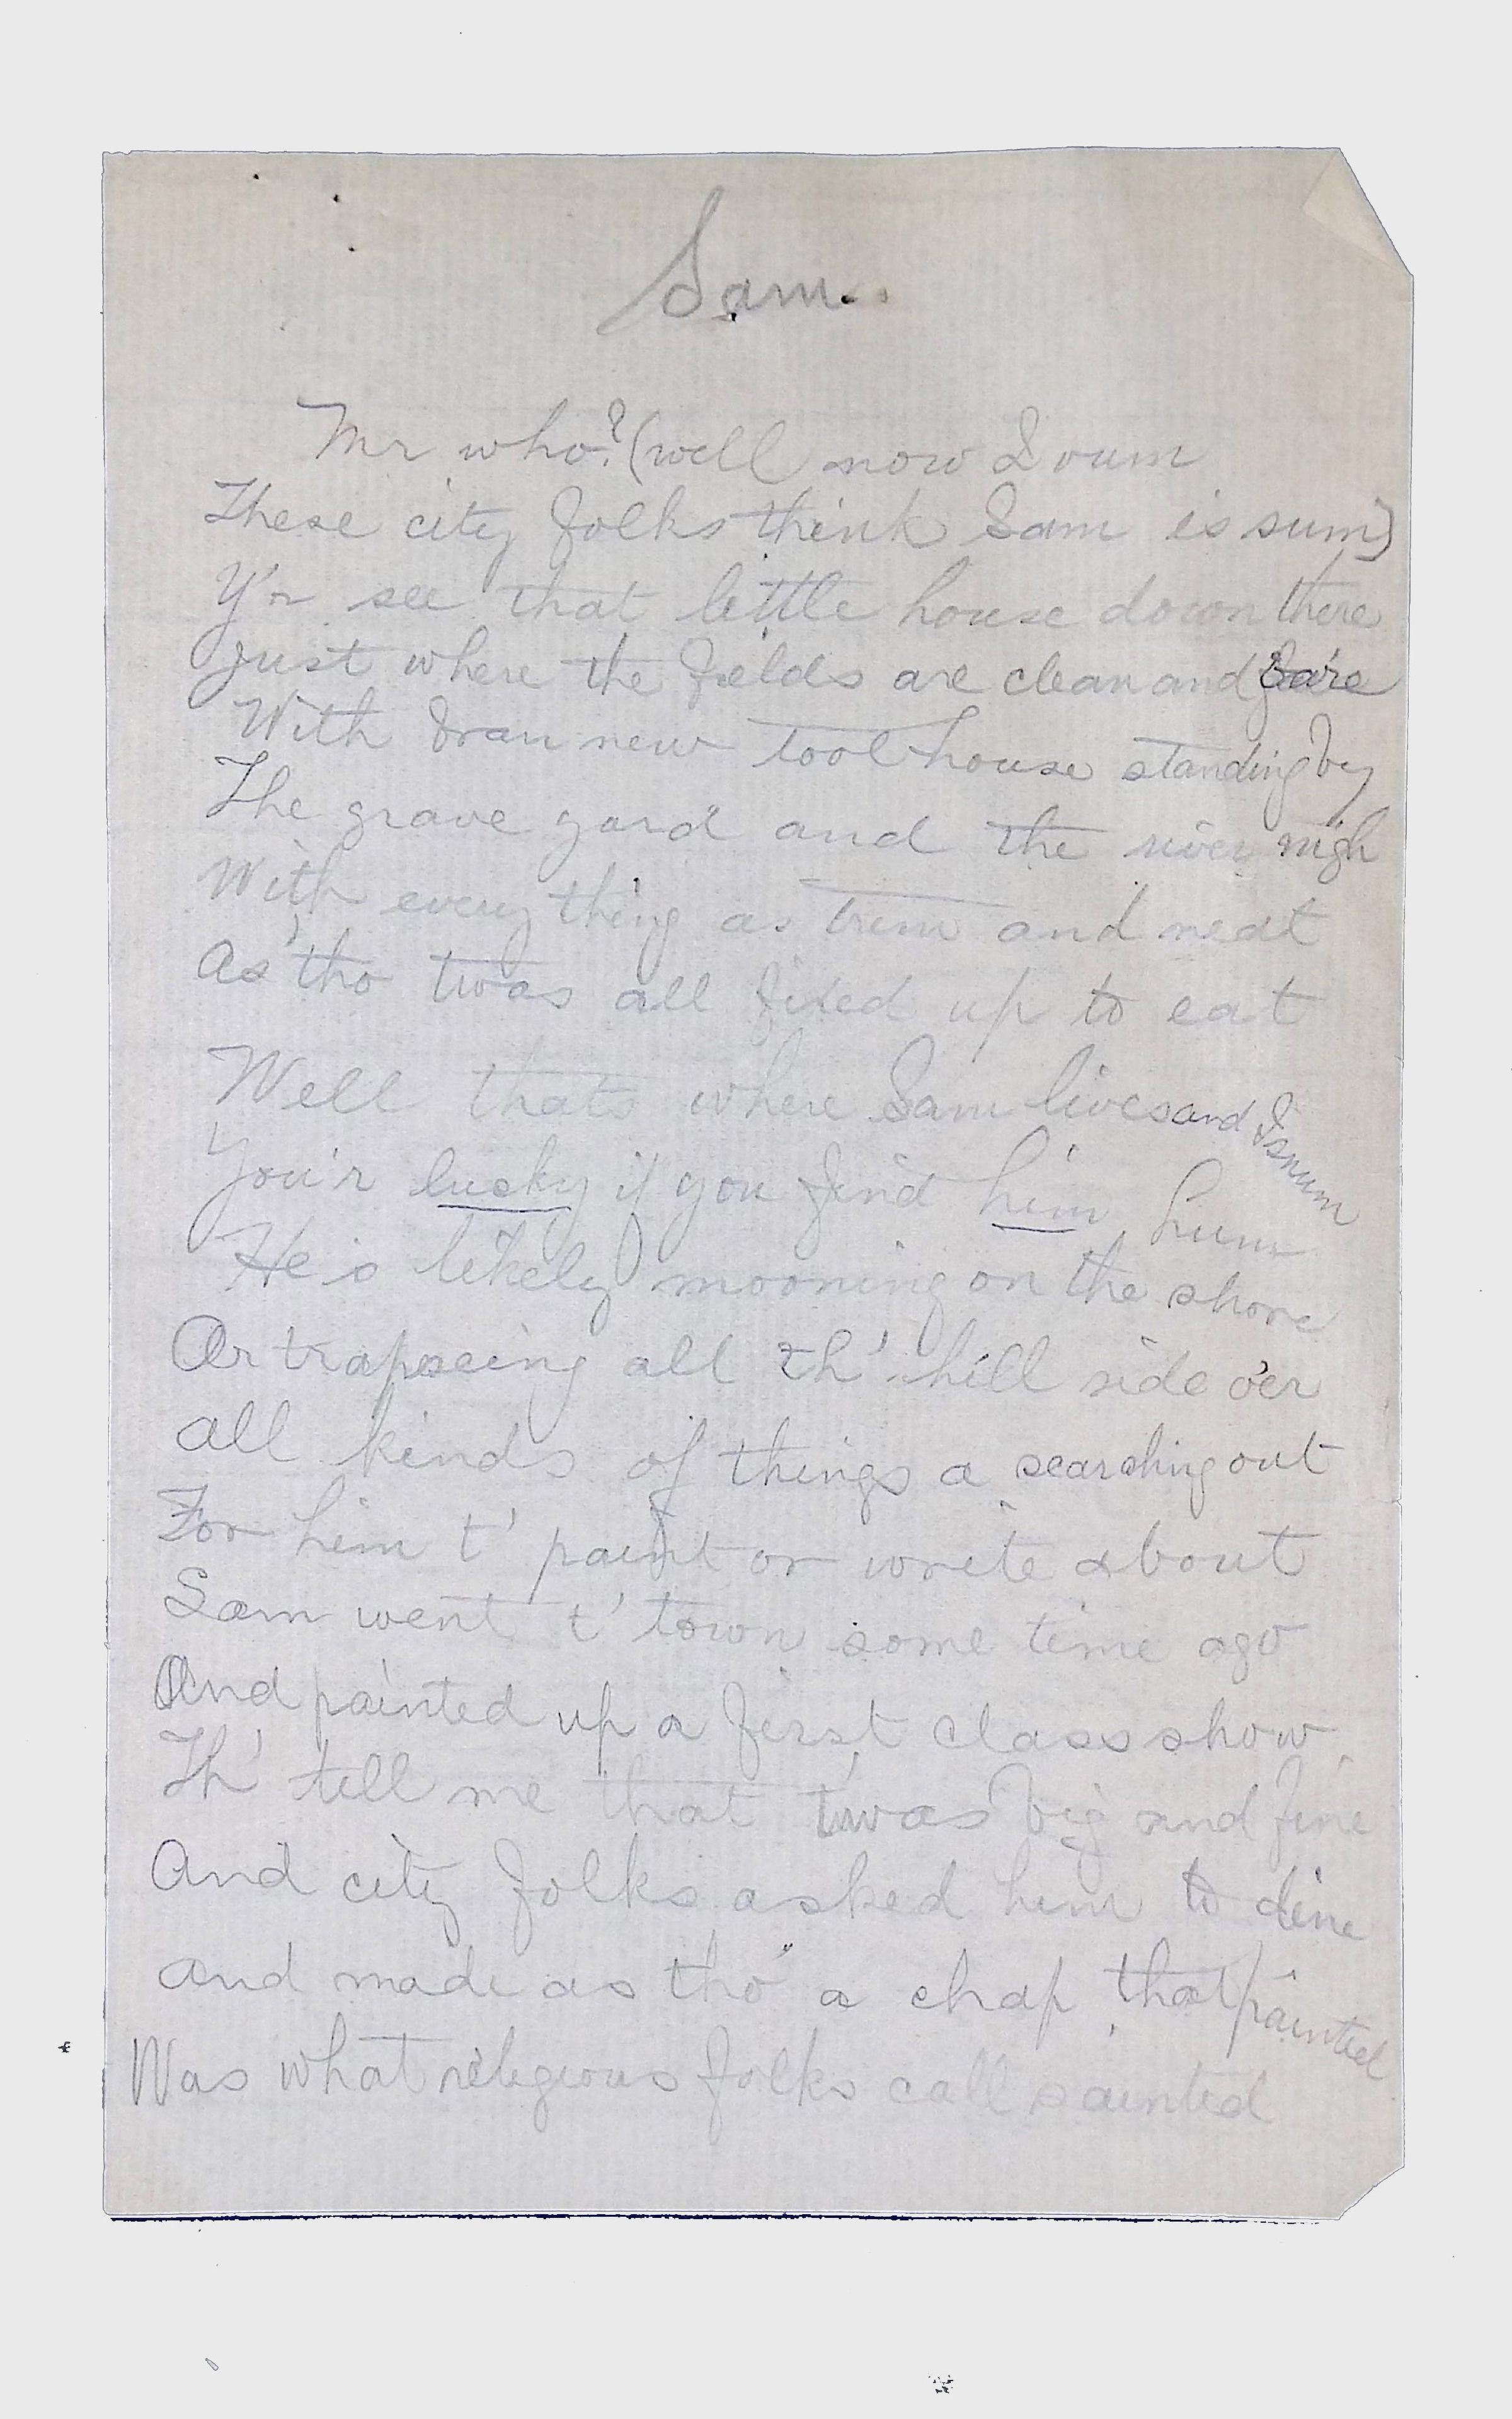 Sam.
Mr who? (well now I vum
These city folks think Sam is sum)
Y'r see that little house down there
Just where the fields are clean and
With bran new tool house standing by
The grave yard and the river nigh
With every thing as trim and neat
As tho twas all fixed up to eat
Well thats where Sam lives and I snum
You'r lucky if you find him hum
He is likely mooning on the shore
Or trapseing all th' hill side o'er
all kinds of things a searching out
For him t' paint or write about
Sam went t' town some time ago
And painted up a first class show
Th' tell me that t'was big and fine
And city folks asked him to dine
and made as tho' a chap that painted
Was what religious folks call sainted